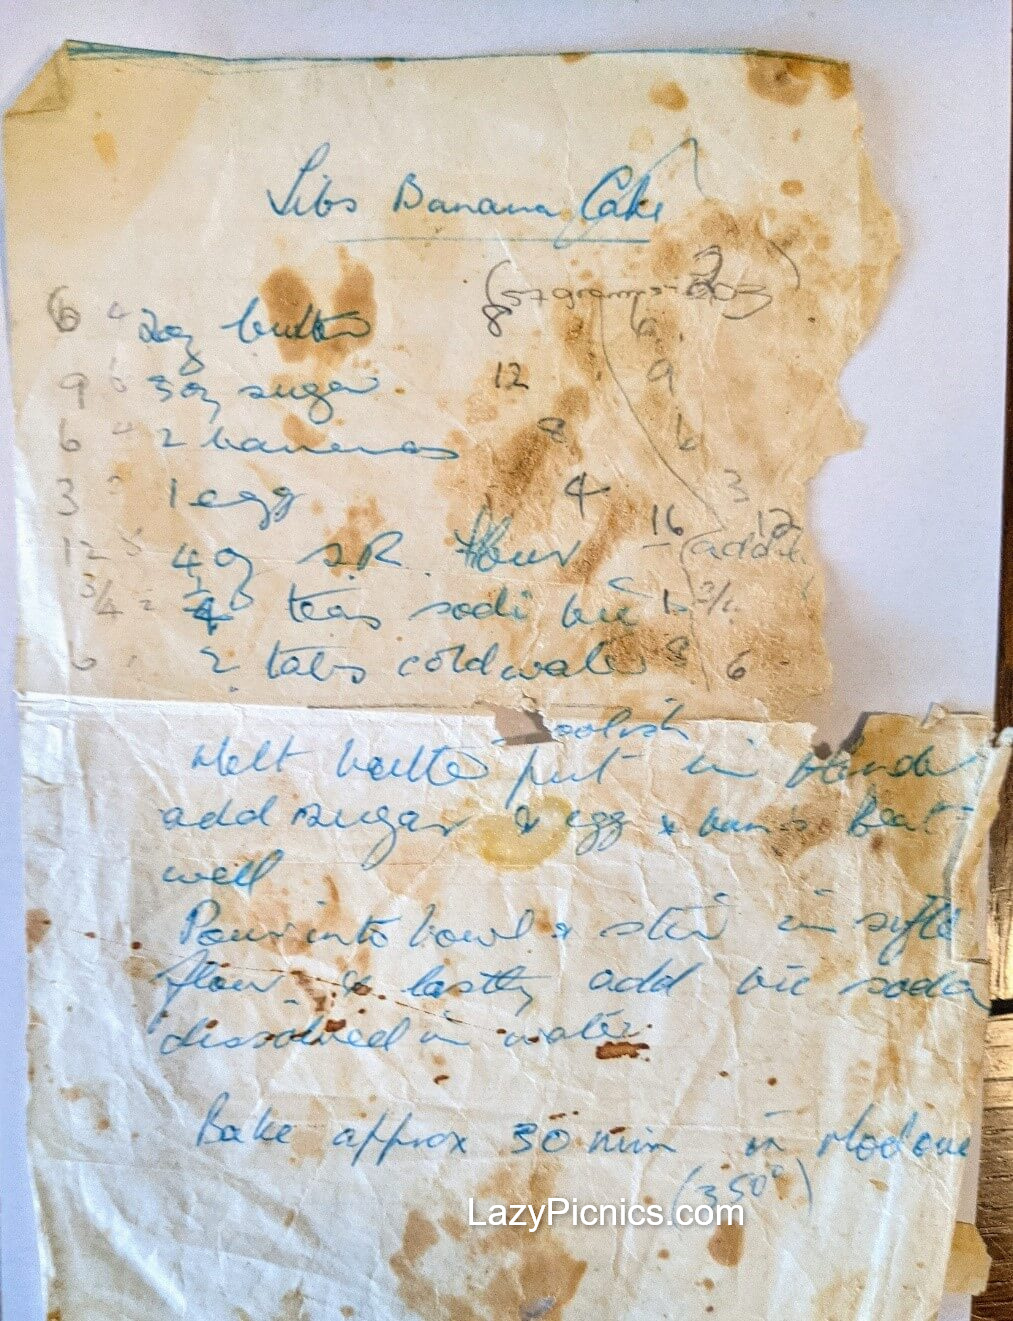 Libs Banana Cake
(57 grams = 2oz)
6 4 2oz butter 8 6
9 6 3oz sugar 12 9
6 4 2 bananas 8 6
3 1 egg 4 3
12 4oz S.R. flour - 16 12
3/4 teas sodi bic 1 3/4
6 2 tabs cold water 8 6
Melt butter put in
add sugar & egg & Beat
well
Pour into bowl & stir in
flour & lastly add bic soda
dissolved in water
Bake approx 30 min in Mod
(350°)
LazyPicnics.com